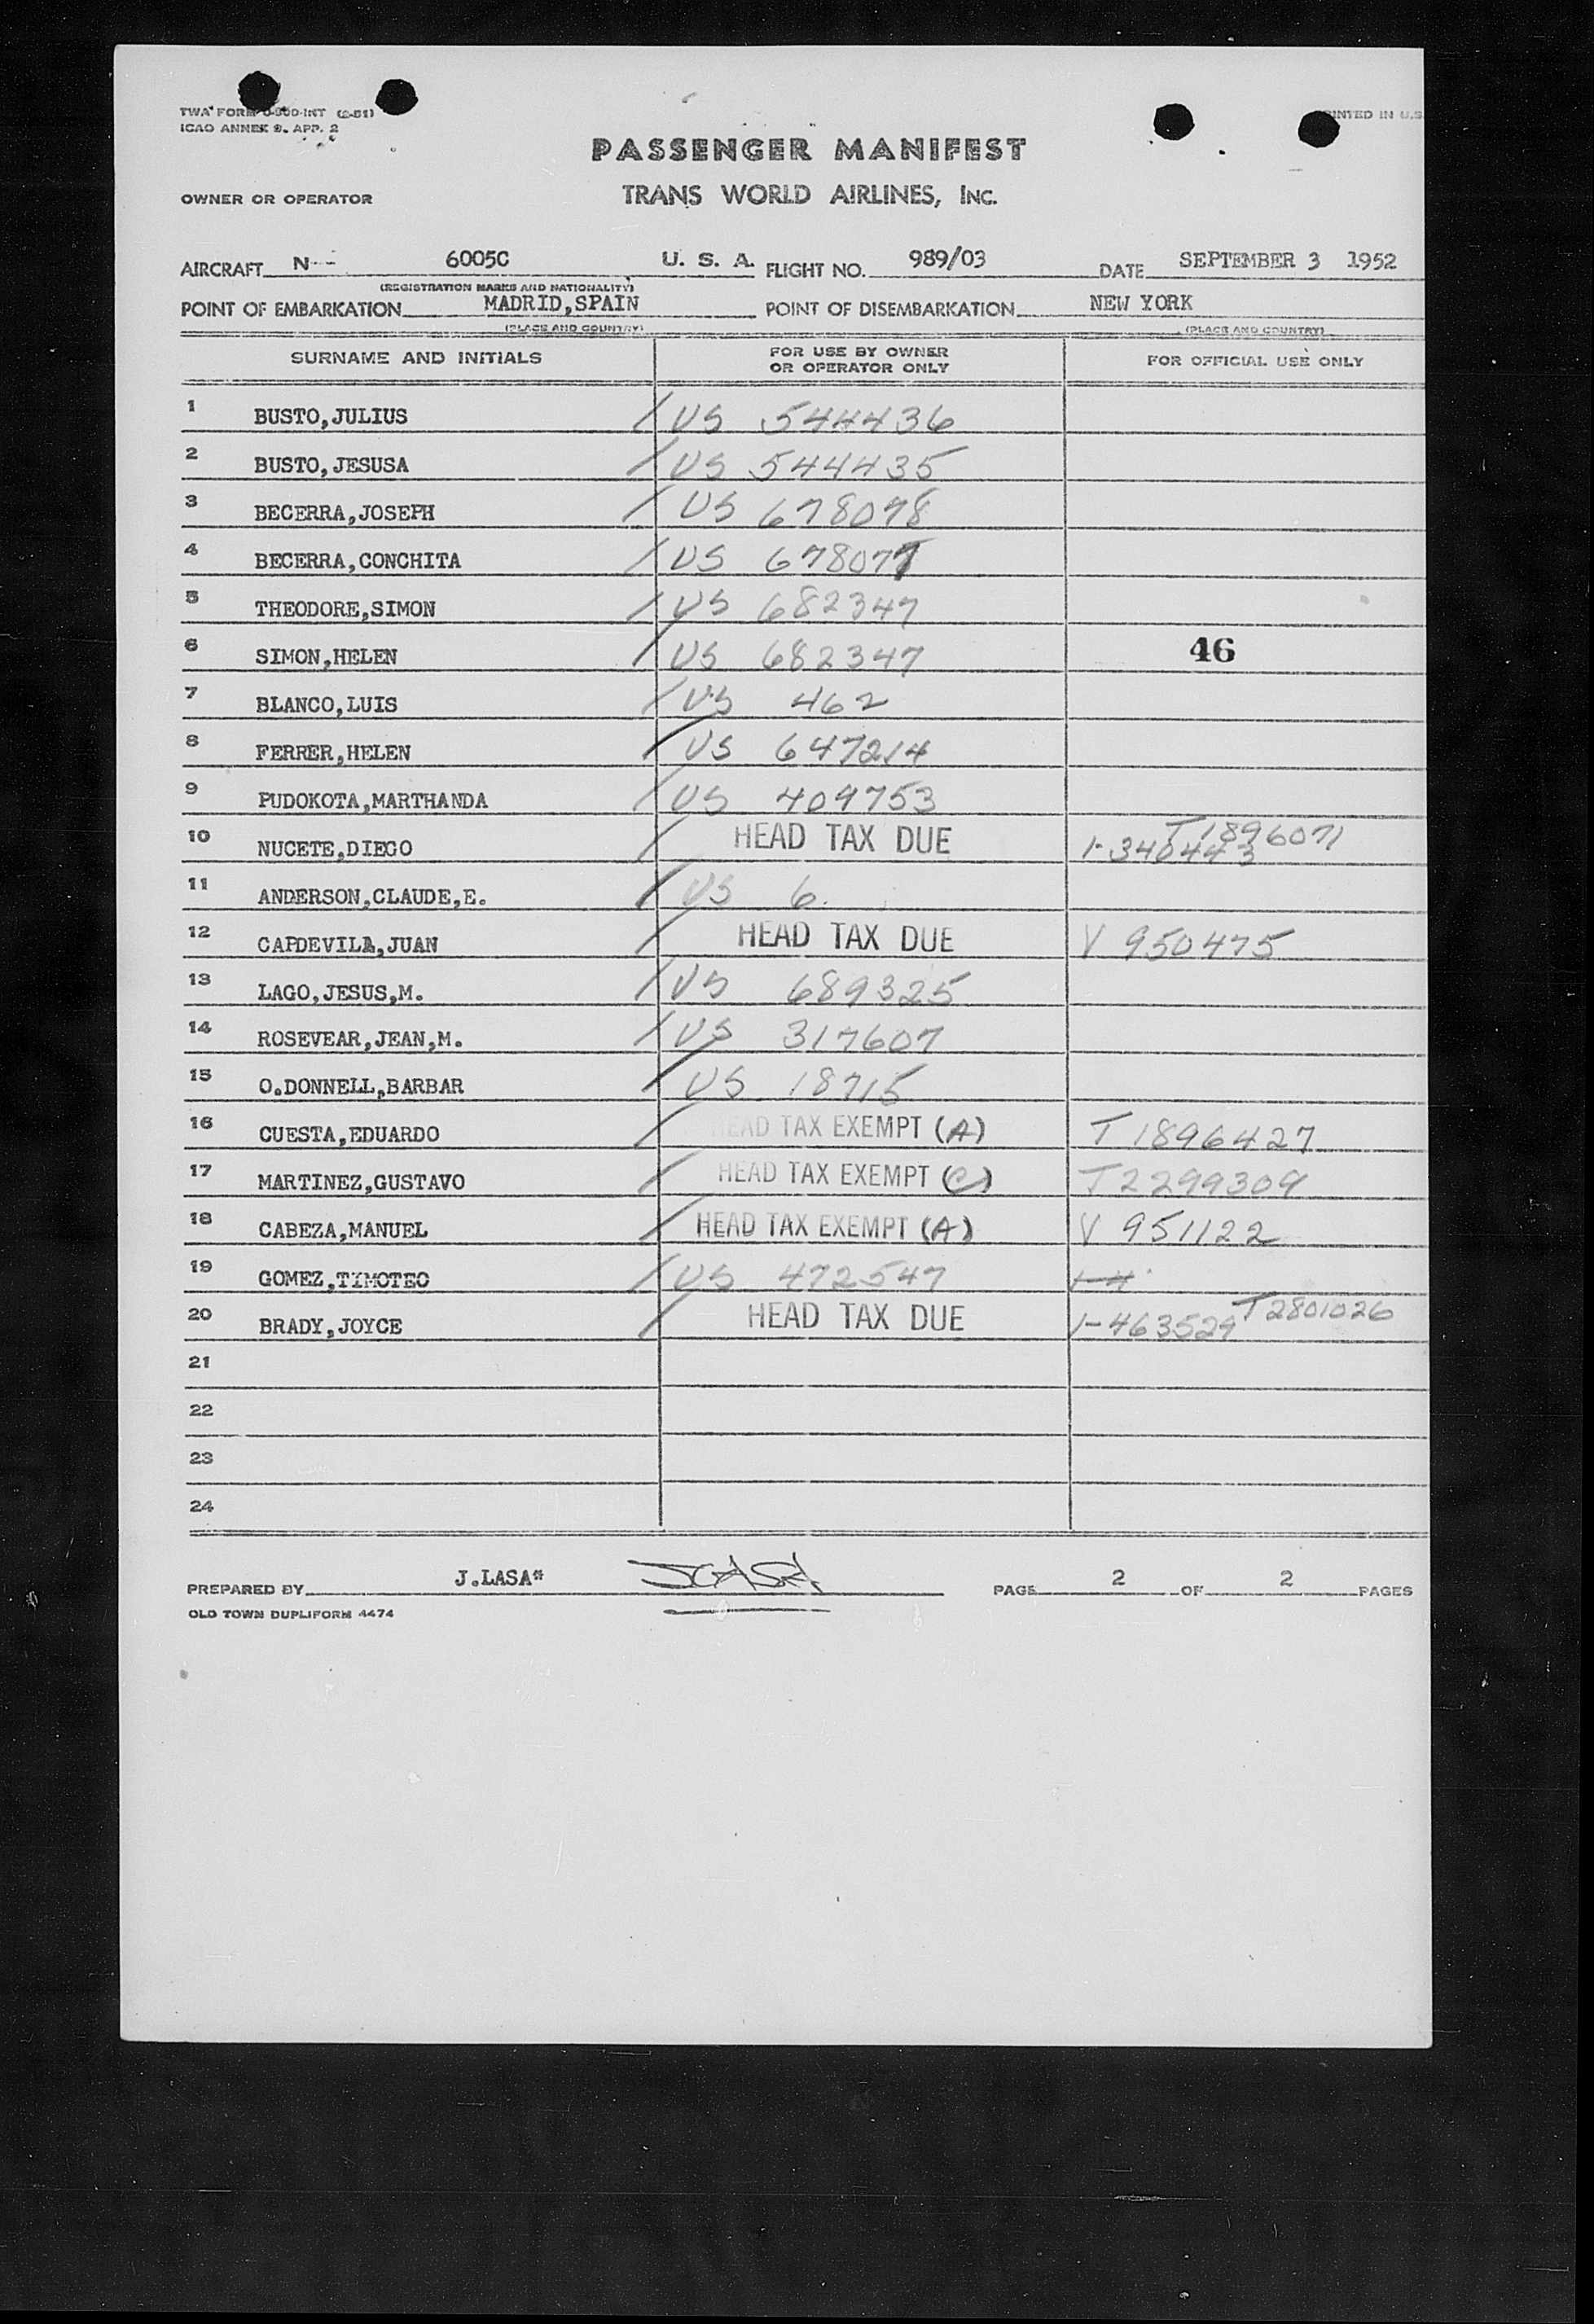 TWA FORM (2-51)
ICAO ANNEX 9. APP. 2
PRINTED IN U.S.
PASSENGER MANIFEST
OWNER OR OPERATOR TRANS WORLD AIRLINES, INC.
AIRCRAFT N-- 6005C U. S. A. FLIGHT NO. 989/03 DATE SEPTEMBER 3 1952
(REGISTRATION MARKS AND NATIONALITY)
POINT OF EMBARKATION MADRID,SPAIN POINT OF DISEMBARKATION NEW YORK
(PLACE AND COUNTRY) (PLACE AND COUNTRY)
SURNAME AND INITIALS FOR USE BY OWNER OR OPERATOR ONLY FOR OFFICIAL USE ONLY
1 BUSTO,JULIUS / US 544436
2 BUSTO,JESUSA / US 544435
3 BECERRA,JOSEPH / US 678078
4 BECERRA,CONCHITA / US 678077
5 THEODORE,SIMON / US 682347
6 SIMON,HELEN / US 682347 46
7 BLANCO,LUIS / US 462
8 FERRER,HELEN / US 647214
9 PUDOKOTA,MARTHANDA / US 409753
10 NUCETE,DIEGO / HEAD TAX DUE T1896071 1-340443
11 ANDERSON,CLAUDE,E. / US 6.
12 CAPDEVILA,JUAN / HEAD TAX DUE V 950475
13 LAGO,JESUS,M. / US 689325
14 ROSEVEAR,JEAN,M. / US 317607
15 O.DONNELL,BARBAR / US 18715
16 CUESTA,EDUARDO / HEAD TAX EXEMPT (A) T1896427
17 MARTINEZ,GUSTAVO / HEAD TAX EXEMPT (C) T2299309
18 CABEZA,MANUEL / HEAD TAX EXEMPT (A) V 951122
19 GOMEZ,TIMOTEO / US 472547 1-4
20 BRADY,JOYCE / HEAD TAX DUE 1-463529 T2801026
21
22
23
24
PREPARED BY J.LASA* JLASA PAGE 2 OF 2 PAGES
OLD TOWN DUPLIFORM 4474